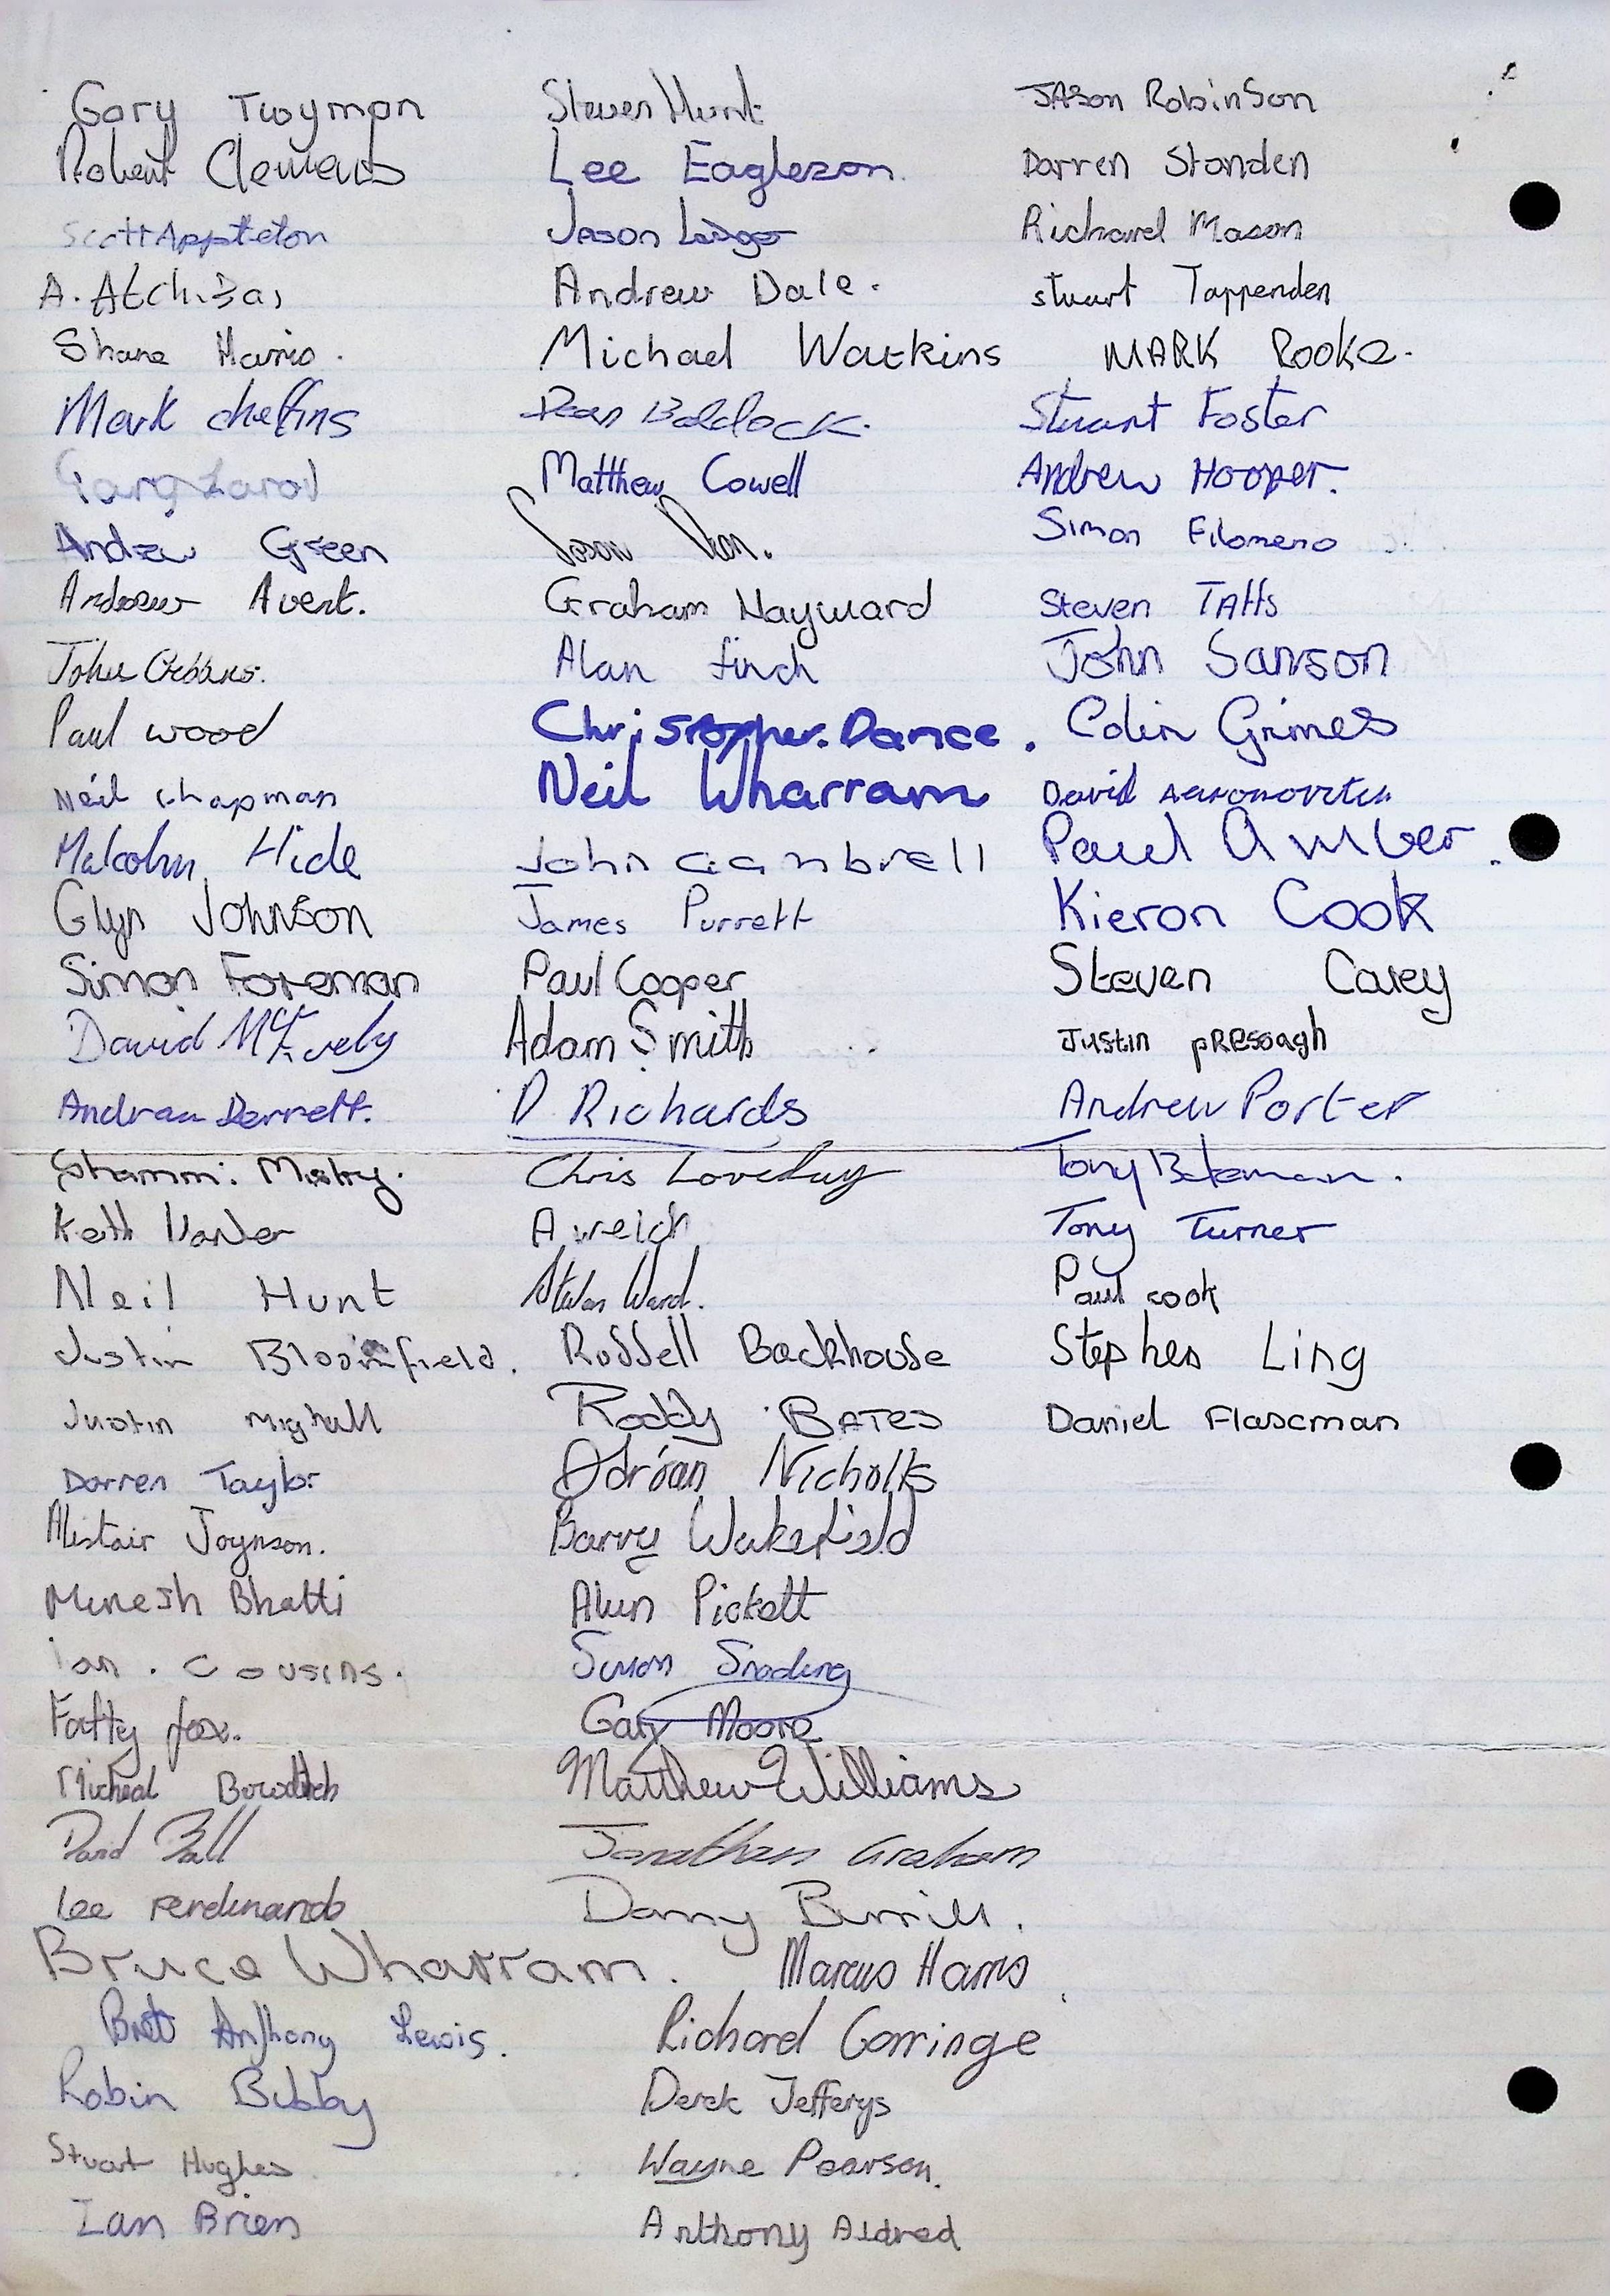 Gary Twyman
Robert Clemens
Scott Appleton
A.
Shane Harris.
Mark
Andrew Green
Andrew Avent.
John
Paul wood
Neil Chapman
Malcolm Hide
Glyn Johnson
Simon Foreman
David McEvely
Andrew Derrett.
Mistry.
Keith
Neil Hunt
Justin Bloomfield.
Justin Mighall
Darren Taylor
Alistair Joynson.
Minesh Bhatti
Ian. Cousins.
Fatty fox.
Micheal Bowditch
David Ball
Lee Ferdinando
Bruce Wharram.
Brett Anthony Lewis.
Robin Bibby
Stuart Hughes.
Ian Brien
Steven Hunt
Lee Eagleson.
Jason
Andrew Dale.
Michael Watkins
Dean Baldock.
Matthew Cowell
Jason
Graham Hayward
Alan finch
Christopher. Dance.
Neil Wharram
John Gambrell
James Purrett
Paul Cooper
Adam Smith
D Richards
Chris Loveday
A welch
Ward.
Russell Backhouse
Roddy BATES
Adrian Nicholls
Barry Wakefield
Alun Pickett
Simon Snoding
Gary Moore
Matthew Williams
Jonathan Graham
Danny Burrill.
Marcus Harris
Richard Gorringe
Derek Jefferys
Wayne Pearson.
Anthony Aldred
JAson RobinSon
Darren Standen
Richard Mason
stuart Tappenden
MARK Rooke.
Stuart Foster
Andrew Hooper.
Simon Filomeno
Steven TAtts
John Sanson
Colin Grimes
David Aaronovitch
Paul Amber.
Kieron Cook
Steven Carey
Justin pResoagh
Andrew Porter
Tony Bateman.
Tony Turner
Paul cook
Stephen Ling
Daniel Flascman